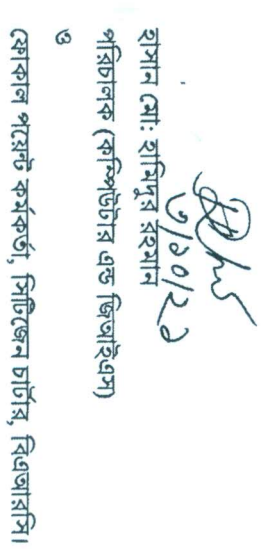 ৩/১০/২১
হাসান মো: হামিদুর রহমান
পরিচালক (কম্পিউটার এন্ড জিআইএস)
ও
ফোকাল পয়েন্ট কর্মকর্তা, সিটিজেন চার্টার, বিএআরসি।